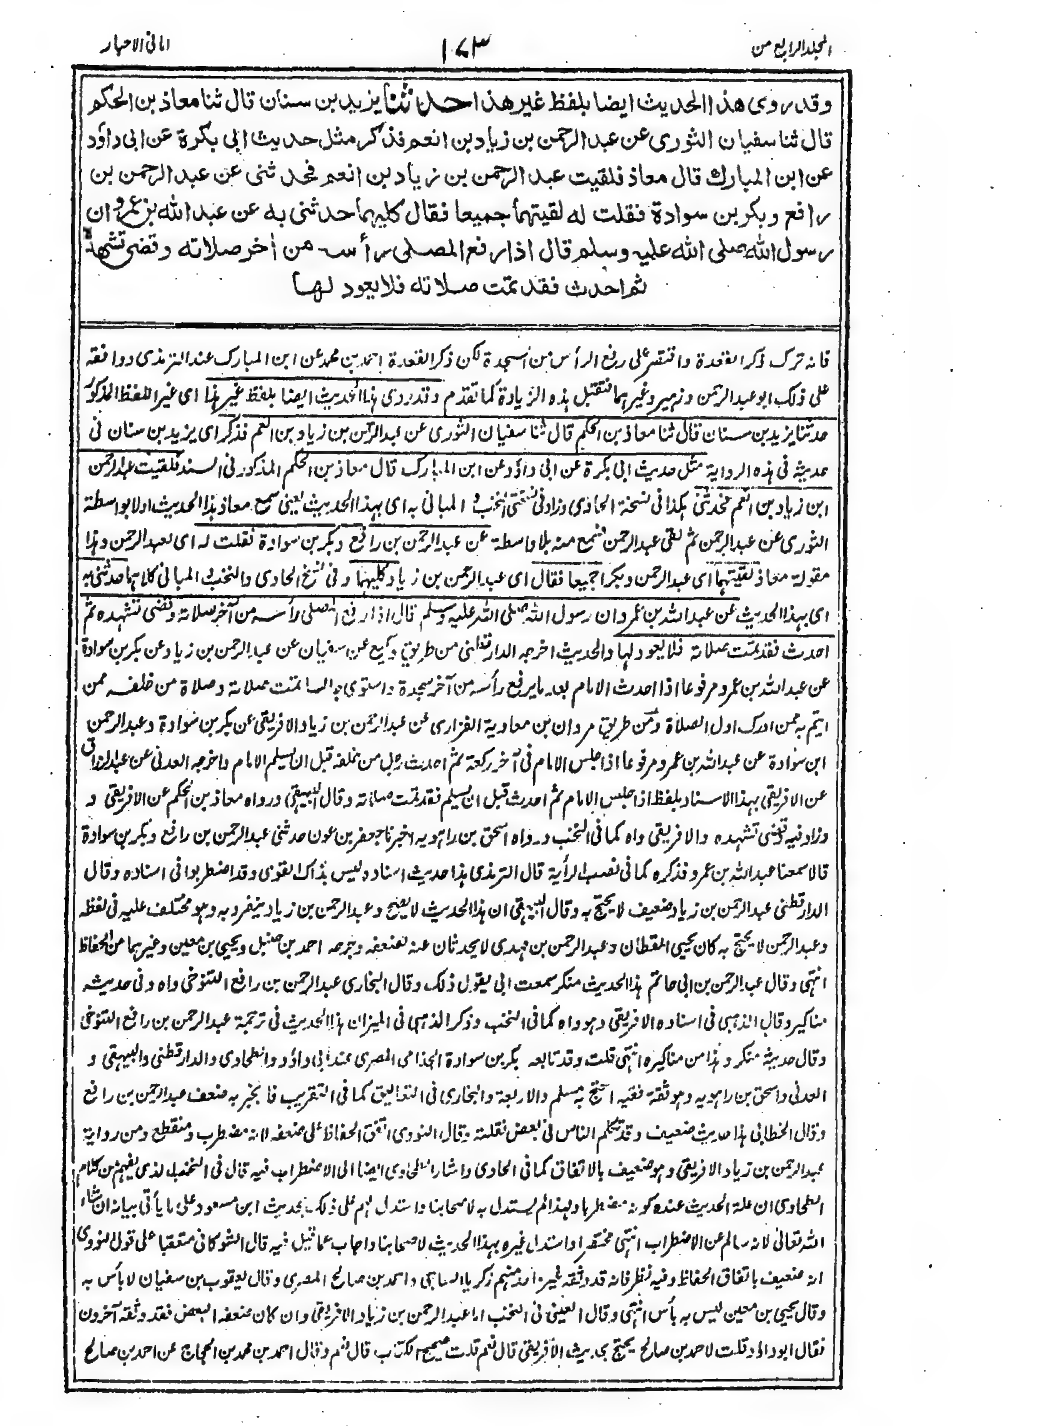 المجلد الرابع من ١٧٣ امانی الاحبار
وقد روى هذا الحديث ايضا بلفظ غير هذا حدثنا يزيد بن سنان قال ثنا معاذ بن الحكم
قال ثنا سفيان الثورى عن عبد الرحمن بن زياد بن انعم فذكر مثل حديث ابى بكرة عن ابى داؤد
عن ابن المبارك قال معاذ فلقيت عبد الرحمن بن زياد بن انعم فحدثنى عن عبد الرحمن بن
رافع وبكر بن سوادة فقلت له لقيتهما جميعا فقال كليهما حدثنى به عن عبد الله بن عمرو ان
رسول الله صلى الله عليه وسلم قال اذا رفع المصلى رأسه من أخر صلاته وقضى تشهده
ثم احدث فقد تمت صلاته فلا يعود لها
فانه ترك ذكر القعدة واقتصر على رفع الرأس من السجدة لكن ذكر القعدة احمد بن محمد عن ابن المبارك عند الترمذى ووافقه
على ذلك ابو عبد الرحمن وزهير وغيرهما فتقبل هذه الزيادة كما تقدم وقد روى هذا الحديث ايضا بلفظ غير هذا اى غير اللفظ المذكور
حدثنا يزيد بن سنان قال ثنا معاذ بن الحكم قال ثنا سفيان الثورى عن عبد الرحمن بن زياد بن انعم فذكر اى يزيد بن سنان فى
حديثه فى هذه الرواية مثل حديث ابى بكرة عن ابى داؤد عن ابن المبارك قال معاذ بن الحكم المذكور فى السند فلقيت عبد الرحمن
ابن زياد بن انعم فحدثنى هكذا فى نسخة الحاوى وزاد فى نسختى النخب و المبانى به اى بهذا الحديث يعنى سمع معاذ هذا الحديث اولا بواسطة
الثورى عن عبد الرحمن ثم لقى عبد الرحمن فسمع منه بلا واسطة عن عبد الرحمن بن رافع وبكر بن سوادة فقلت له اى لعبد الرحمن وهذا
مقولة معاذ لقيتهما اى عبد الرحمن وبكرا جميعا فقال اى عبد الرحمن بن زياد كليهما وفى نسخ الحاوى والنخب و المبانى كلاهما حدثنى به
اى بهذا الحديث عن عبد الله بن عمرو ان رسول الله صلى الله عليه وسلم قال اذا رفع المصلى رأسه من آخر صلاته وقضى تشهده ثم
احدث فقد تمت صلاته فلا يعود لها والحديث اخرجه الدارقطنى من طريق وكيع عن سفيان عن عبد الرحمن بن زياد عن بكر بن سوادة
عن عبد الله بن عمرو مرفوعا اذا احدث الامام بعد ما يرفع رأسه من آخر سجدة واستوى جالسا تمت صلاته وصلاة من خلفه ممن
ائتم به ممن ادرك اول الصلاة ومن طريق مروان بن معاوية الفزارى عن عبد الرحمن بن زياد الافريقى عن بكر بن سوادة وعبد الرحمن
ابن سوادة عن عبد الله بن عمرو مرفوعا اذا جلس الامام فى آخر ركعة ثم احدث رجل من خلفه قبل ان يسلم الامام واخرجه العدنى عن عبد الرزاق
عن الافريقى بهذا الاسناد بلفظ اذا جلس الامام ثم احدث قبل ان يسلم فقد تمت صلاته وقال البيهقى ورواه معاذ بن الحكم عن الافريقى و
وزاد فيه قضى تشهده والافريقى واه كما فى النخب ورواه اسحق بن راهويه اخبرنا جعفر بن عون حدثنى عبد الرحمن بن رافع وبكر بن سوادة
قالا سمعنا عبد الله بن عمرو فذكره كما فى نصب الرأية قال الترمذى هذا حديث اسناده ليس بذاك القوى وقد اضطربوا فى اسناده وقال
الدارقطنى عبد الرحمن بن زياد ضعيف لا يحتج به وقال البيهقى ان هذا الحديث لا يصح وعبد الرحمن بن زياد ينفرد به وهو مختلف عليه فى لفظه
وعبد الرحمن لا يحتج به كان يحيى القطان وعبد الرحمن بن مهدى لا يحدثان عنه لضعفه وجرحه احمد بن حنبل ويحيى بن معين وغيرهما من الحفاظ
انتهى وقال عبد الرحمن بن ابى حاتم هذا الحديث منكر سمعت ابى يقول ذلك وقال البخارى عبد الرحمن بن رافع التنوخى واه وفى حديثه
مناكير وقال الذهبى فى اسناده الافريقى وهو واه كما فى النخب وذكر الذهبى فى الميزان هذا الحديث فى ترجمة عبد الرحمن بن رافع التنوخى
وقال حديثه منكر وهذا من مناكيره انتهى قلت وقد تابعه بكر بن سوادة الجذامى المصرى عند ابى داؤد والطحاوى والدارقطنى والبيهقى و
العدنى واسحق بن راهويه وهو ثقة فقيه احتج به مسلم والاربعة والبخارى فى التعاليق كما فى التقريب فانجبر به ضعف عبد الرحمن بن رافع
وقال الخطابى هذا حديث ضعيف وقد تكلم الناس فى بعض نقلته وقال النووى اتفق الحفاظ على ضعفه لانه مضطرب ومنقطع ومن رواية
عبد الرحمن بن زياد الافريقى وهو ضعيف بالاتفاق كما فى الحاوى واشار الطحاوى ايضا الى الاضطراب فيه قال فى النخب الذى يفهم من كلام
الطحاوى ان علة الحديث عنده كونه مضطربا ولهذا لم يستدل به لاصحابنا واستدل لهم على ذلك بحديث ابن مسعود على ما يأتى بيانه ان شاء
الله تعالى لانه سالم عن الاضطراب انتهى مختصرا واستدل غيره بهذا الحديث لاصحابنا واجاب عما قيل فيه قال الشوكانى متعقبا على قول النووى
انه ضعيف باتفاق الحفاظ وفيه نظر فانه قد وثقه غير واحد منهم زكريا الساجى واحمد بن صالح المصرى وقال يعقوب بن سفيان لا بأس به
وقال يحيى بن معين ليس به بأس انتهى وقال العينى فى النخب اما عبد الرحمن بن زياد الافريقى وان كان ضعفه البعض فقد وثقه آخرون
فقال ابو داؤد قلت لاحمد بن صالح يحتج بحديث الافريقى قال نعم قلت صحيح الكتاب قال نعم وقال احمد بن محمد بن الحجاج عن احمد بن صالح